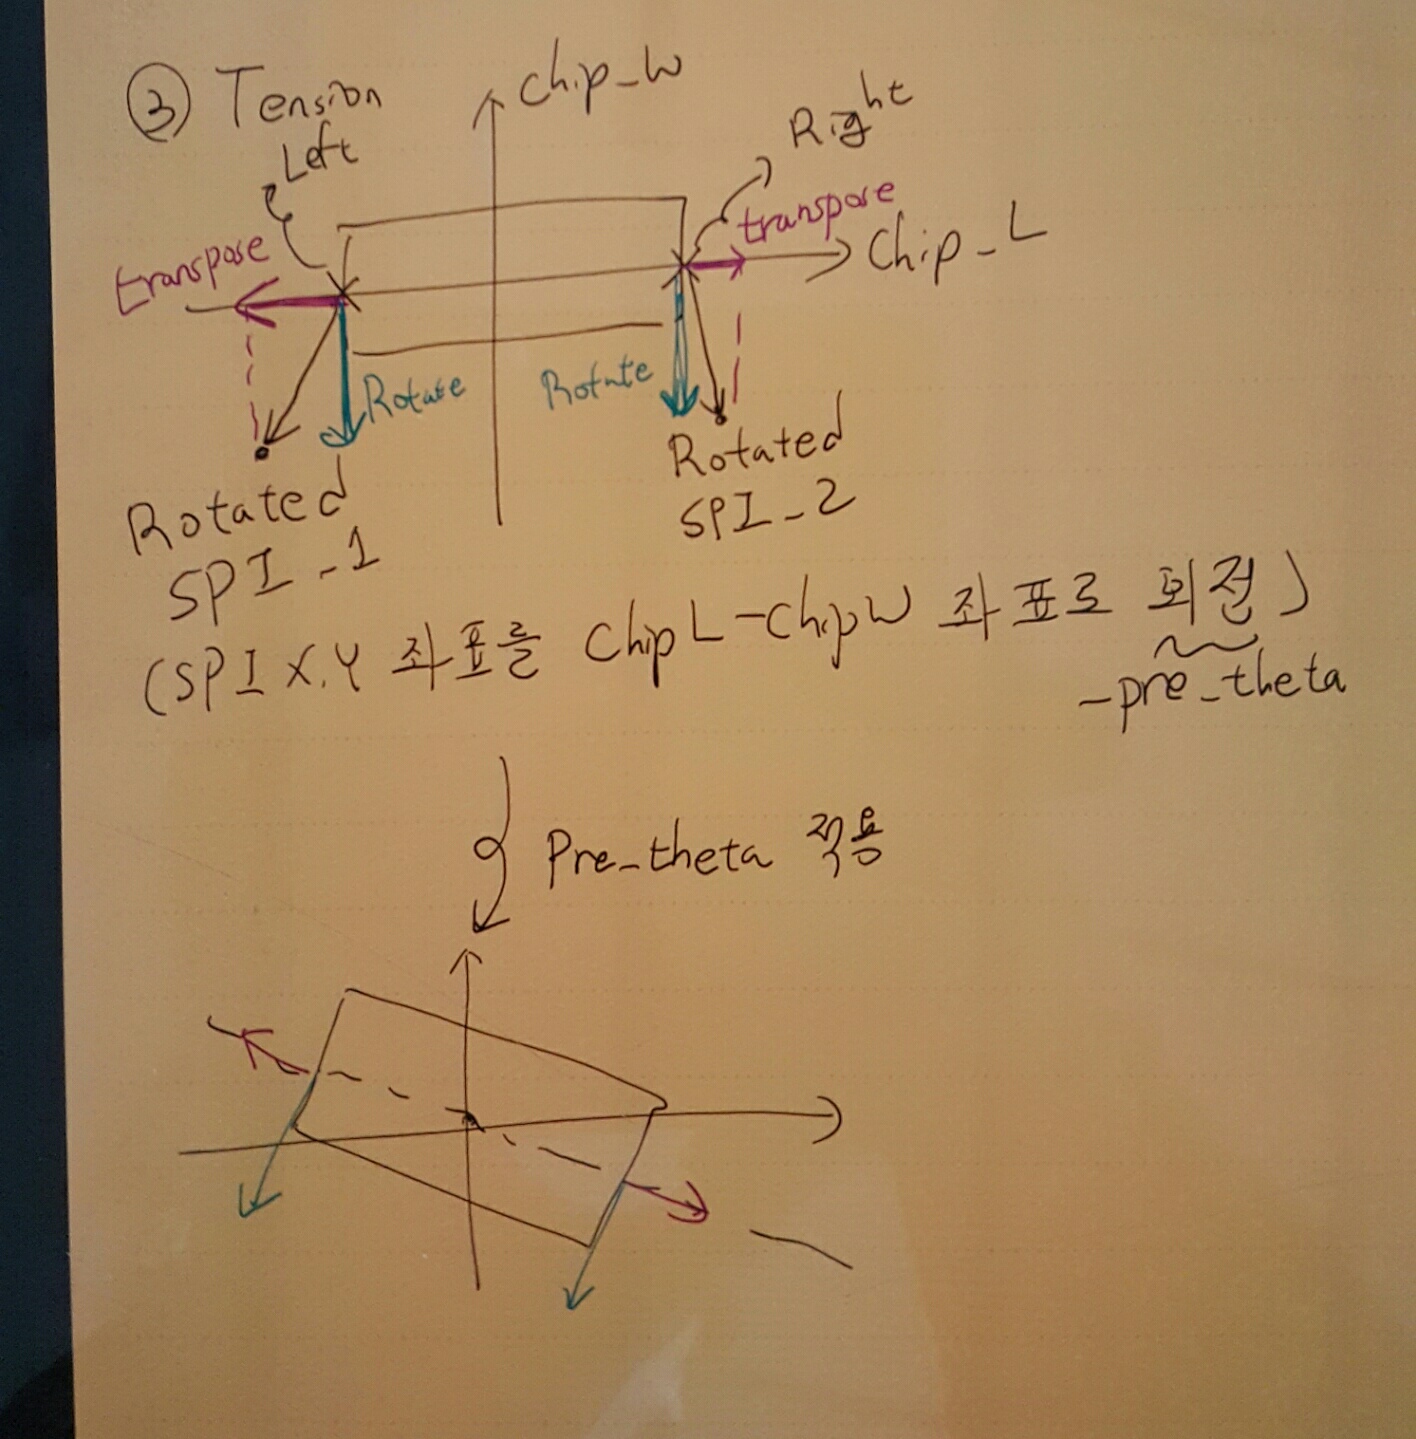 ③ Tension
Chip_W
Left
Right
transpose
transpose
Chip_L
Rotate
Rotate
Rotated
SPI_1
Rotated
SPI_2
(SPI X,Y 좌표를 Chip L-Chip W 좌표로 회전)
-pre_theta
Pre_theta 적용